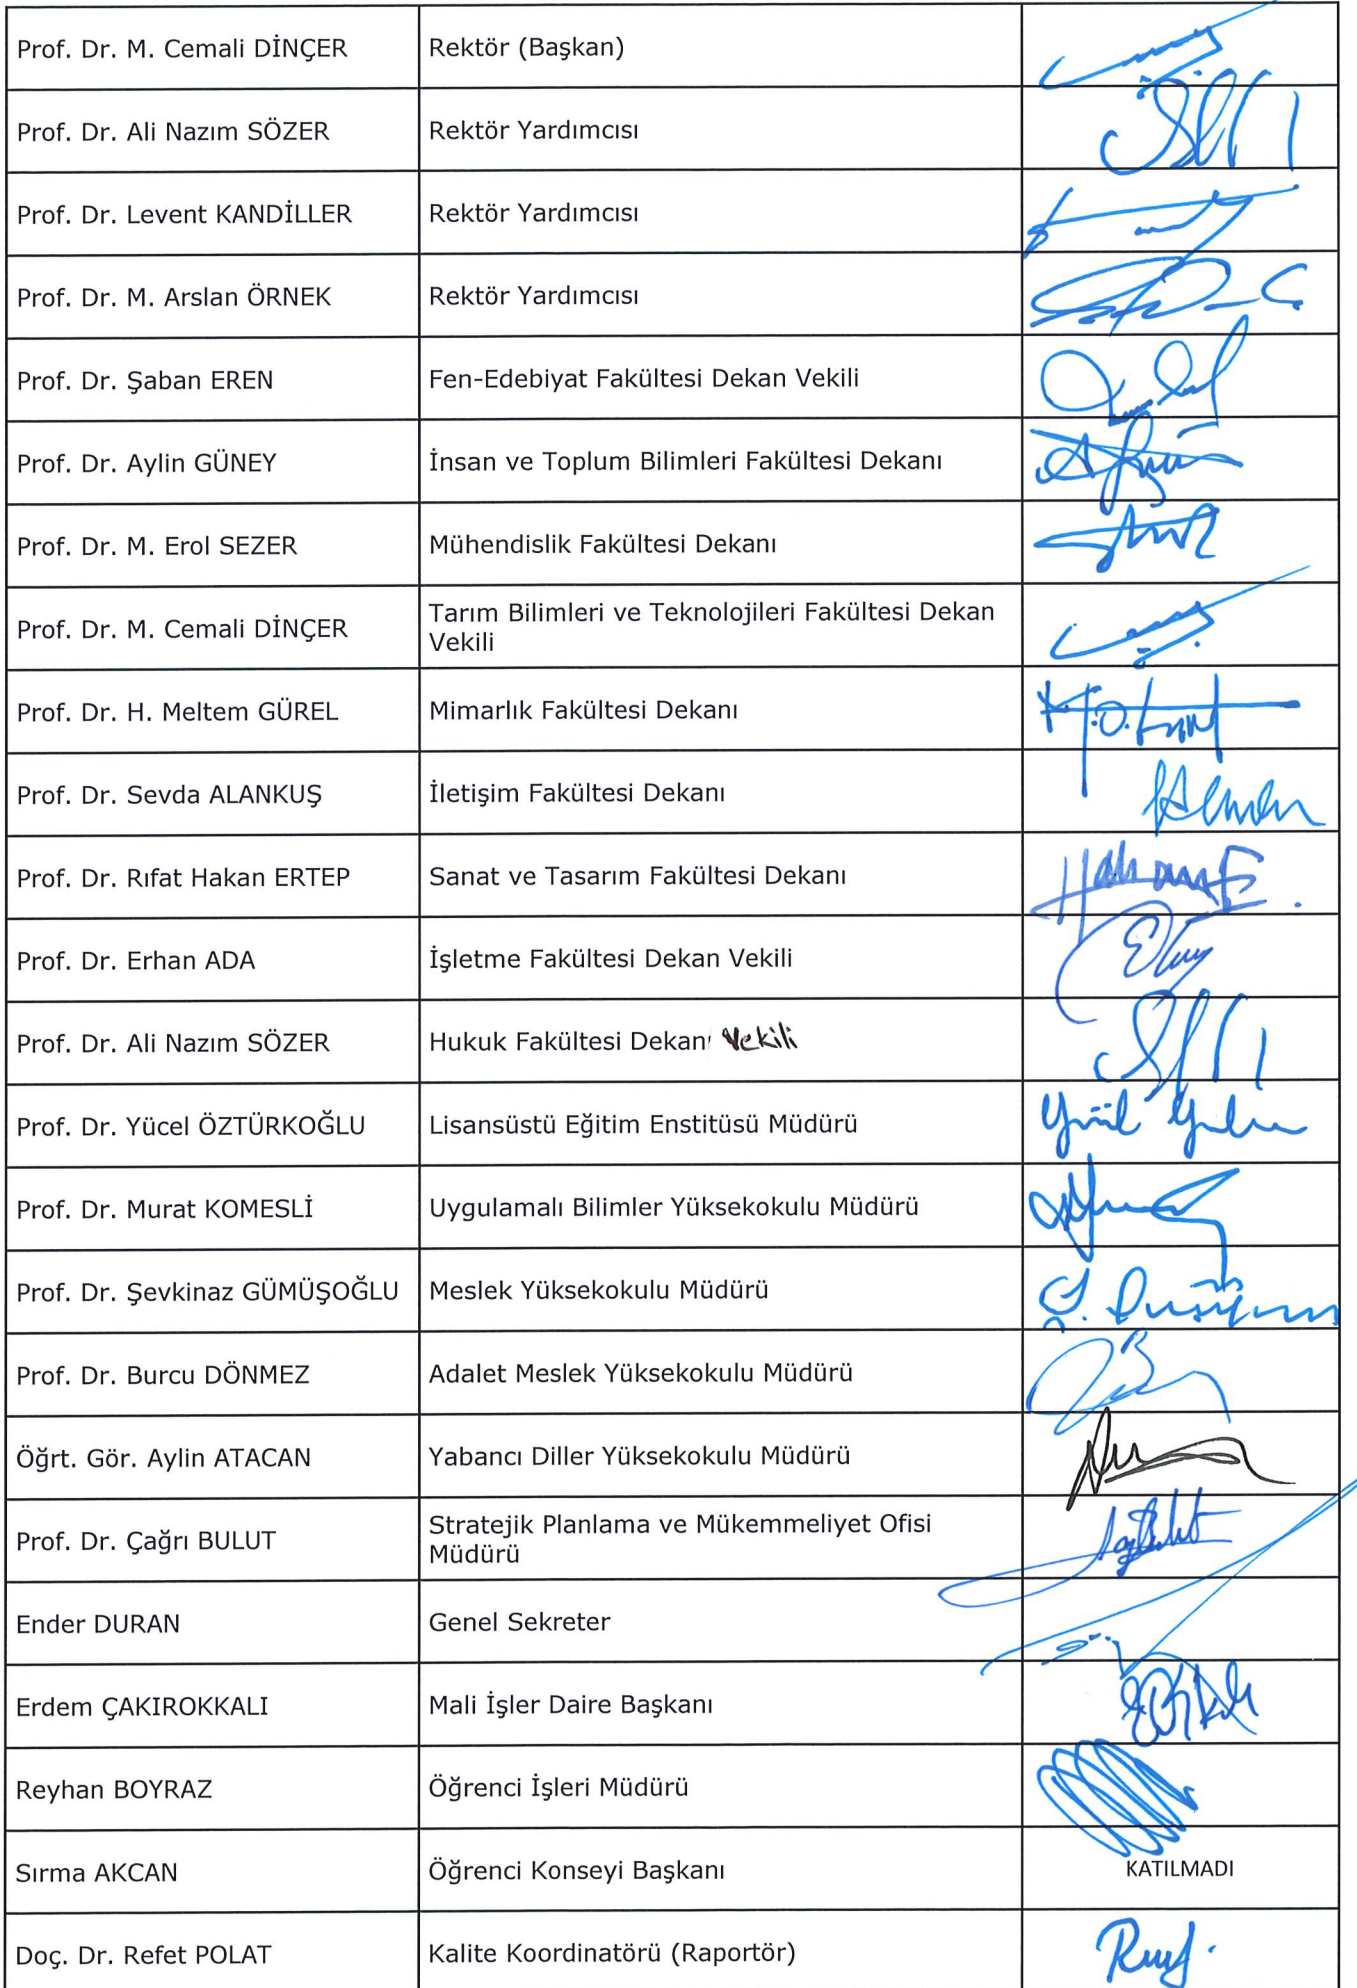 Prof. Dr. M. Cemali DİNÇER Rektör (Başkan)
Prof. Dr. Ali Nazım SÖZER Rektör Yardımcısı
Prof. Dr. Levent KANDİLLER Rektör Yardımcısı
Prof. Dr. M. Arslan ÖRNEK Rektör Yardımcısı
Prof. Dr. Şaban EREN Fen-Edebiyat Fakültesi Dekan Vekili
Prof. Dr. Aylin GÜNEY İnsan ve Toplum Bilimleri Fakültesi Dekanı
Prof. Dr. M. Erol SEZER Mühendislik Fakültesi Dekanı
Prof. Dr. M. Cemali DİNÇER Tarım Bilimleri ve Teknolojileri Fakültesi Dekan
Vekili
Prof. Dr. H. Meltem GÜREL Mimarlık Fakültesi Dekanı
Prof. Dr. Sevda ALANKUŞ İletişim Fakültesi Dekanı
Prof. Dr. Rıfat Hakan ERTEP Sanat ve Tasarım Fakültesi Dekanı
Prof. Dr. Erhan ADA İşletme Fakültesi Dekan Vekili
Prof. Dr. Ali Nazım SÖZER Hukuk Fakültesi Dekanı Vekili
Prof. Dr. Yücel ÖZTÜRKOĞLU Lisansüstü Eğitim Enstitüsü Müdürü
Prof. Dr. Murat KOMESLİ Uygulamalı Bilimler Yüksekokulu Müdürü
Prof. Dr. Şevkinaz GÜMÜŞOĞLU Meslek Yüksekokulu Müdürü
Prof. Dr. Burcu DÖNMEZ Adalet Meslek Yüksekokulu Müdürü
Öğrt. Gör. Aylin ATACAN Yabancı Diller Yüksekokulu Müdürü
Prof. Dr. Çağrı BULUT Stratejik Planlama ve Mükemmeliyet Ofisi
Müdürü
Ender DURAN Genel Sekreter
Erdem ÇAKIROKKALI Mali İşler Daire Başkanı
Reyhan BOYRAZ Öğrenci İşleri Müdürü
Sırma AKCAN Öğrenci Konseyi Başkanı KATILMADI
Doç. Dr. Refet POLAT Kalite Koordinatörü (Raportör)